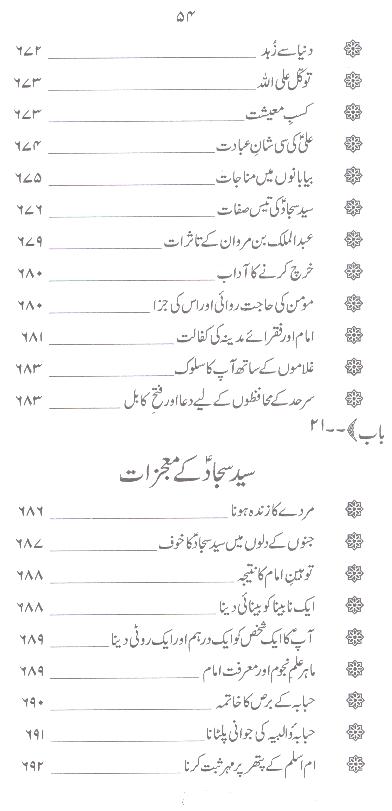 ۵۴
دنیا سے زُہد ۶۷۲
توکل علی اللہ ۶۷۳
کسبِ معیشت ۶۷۳
علیؑ کی سی شانِ عبادت ۶۷۴
بیابانوں میں مناجات ۶۷۵
سید سجادؑ کی تیس صفات ۶۷۶
عبدالملک بن مروان کے تاثرات ۶۷۹
خرچ کرنے کا آداب ۶۸۰
مؤمن کی حاجت روائی اور اس کی جزا ۶۸۰
امام اور فقرائے مدینہ کی کفالت ۶۸۱
غلاموں کے ساتھ آپ کا سلوک ۶۸۳
سرحد کے محافظوں کے لیے دعا اور فتح کابل ۶۸۳
باب ﴾--۲۱
سید سجادؑ کے معجزات
مردے کا زندہ ہونا ۶۸۶
جنوں کے دلوں میں سید سجادؑ کا خوف ۶۸۷
توہینِ امام کا نتیجہ ۶۸۸
ایک نابینا کو بینائی دینا ۶۸۸
آپؑ کا ایک شخص کو ایک درہم اور ایک روٹی دینا ۶۸۹
ماہر علمِ نجوم اور معرفت امام ۶۸۹
حبابہ کے برص کا خاتمہ ۶۹۰
حبابۂ والبیہ کی جوانی پلٹانا ۶۹۱
ام اسلم کے پتھر پر مہر ثبت کرنا ۶۹۲